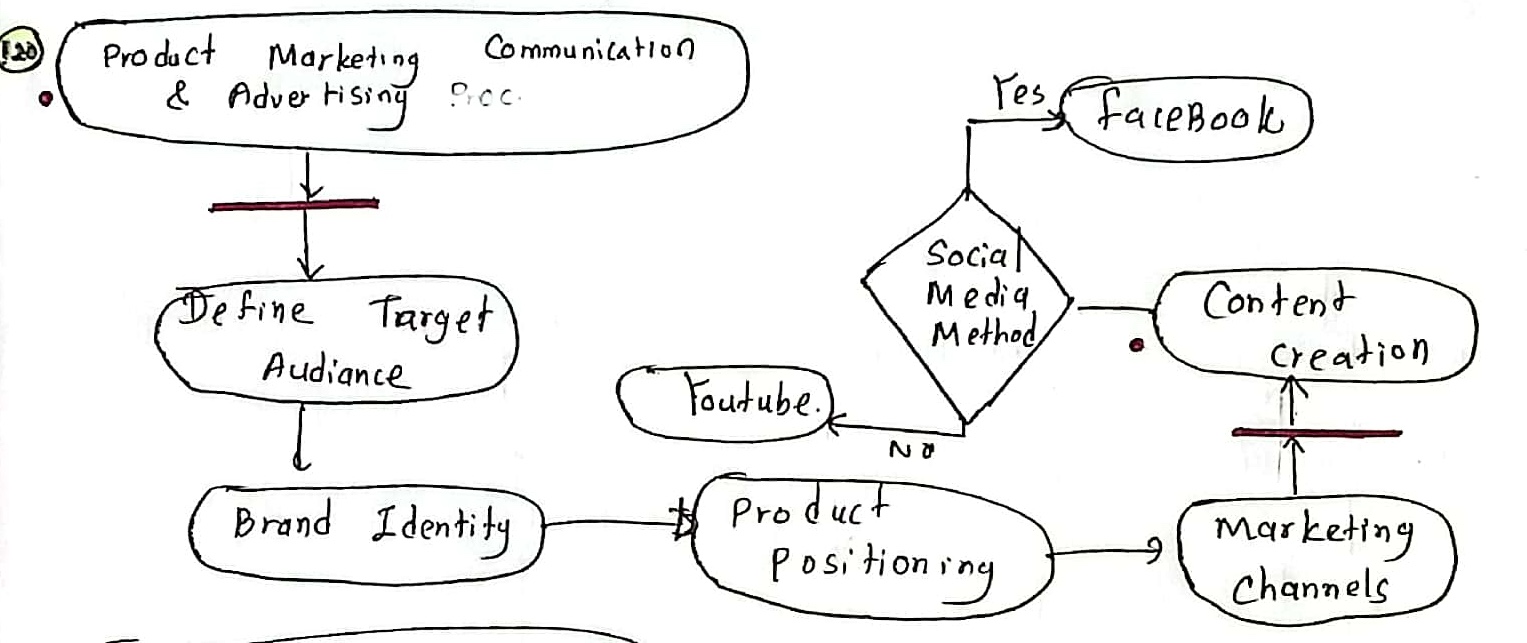 120
Product Marketing Communication
& Advertising Proc.
Define Target
Audiance
Brand Identity
Product
Positioning
Marketing
Channels
Content
Creation
Social
Media
Method
Yes
FaceBook
No
Youtube.